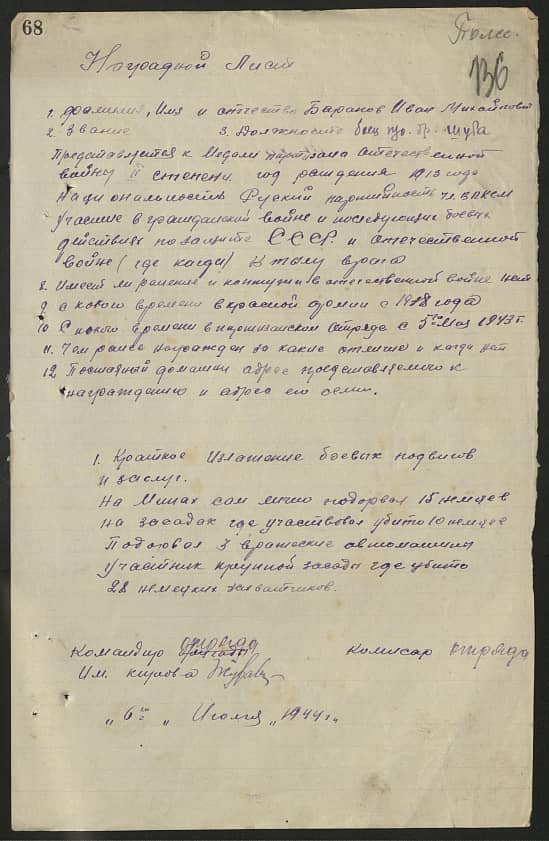 68
Полес.
136
Наградной Лист
1. Фамилия, Имя и отчество Баранов Иван Михайлович
2. Звание 3. Должность боец
Представляется к Медали партизана отечественной
войны II степени год рождения 1913 года
Национальность Руский партийность чл. ВЛКСМ
Участие в гражданской войне и последующих боевых
действиях по защите СССР. и отечественной
войне (где когда) В тылу врага
8. Имеет ли ранения и контузии в отечественной войне нет
9 с какого времени в красной армии с 1938 года
10 С какого времени в партизанском Отряде с 5го Мая 1943 г.
11. Чем ранее награжден за какие отличие и когда нет
12 Постоянный домашни адрес представляемого к
награждению и адрес его семьи.
1. Краткое Изложение боевых подвигов
и заслуг.
На Минах сам лично подорвал 15 немцев
на засадах где участвовал убито 10 немцев
Подорвал 3 вражеские автомашины
Участник крупной засады где убито
28 немецких захватчиков.
отряда
Командир бригады Комисар отряда
Им. кирова
„ 6го „ Июля „ 1944 г„